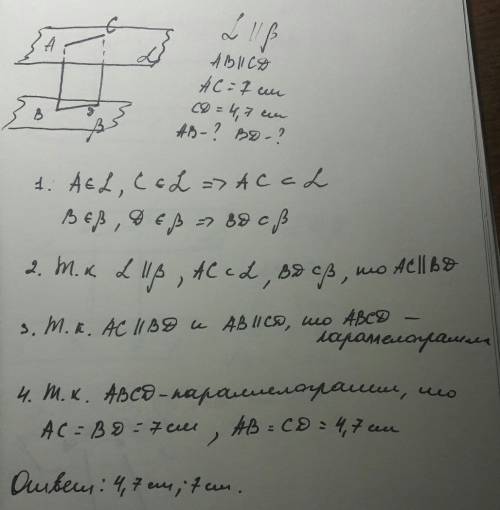 A
C
α
B
D
β
α || β
AB || CD
AC = 7 см
CD = 4,7 см
AB - ? BD - ?
1. A ∈ α, C ∈ α => AC ⊂ α
B ∈ β, D ∈ β => BD ⊂ β
2. Т.к α || β, AC ⊂ α, BD ⊂ β, то AC || BD
3. Т.к. AC || BD и AB || CD, то ABCD -
параллелограмм
4. Т.к. ABCD - параллелограмм, то
AC = BD = 7 см, AB = CD = 4,7 см
Ответ: 4,7 см; 7 см.